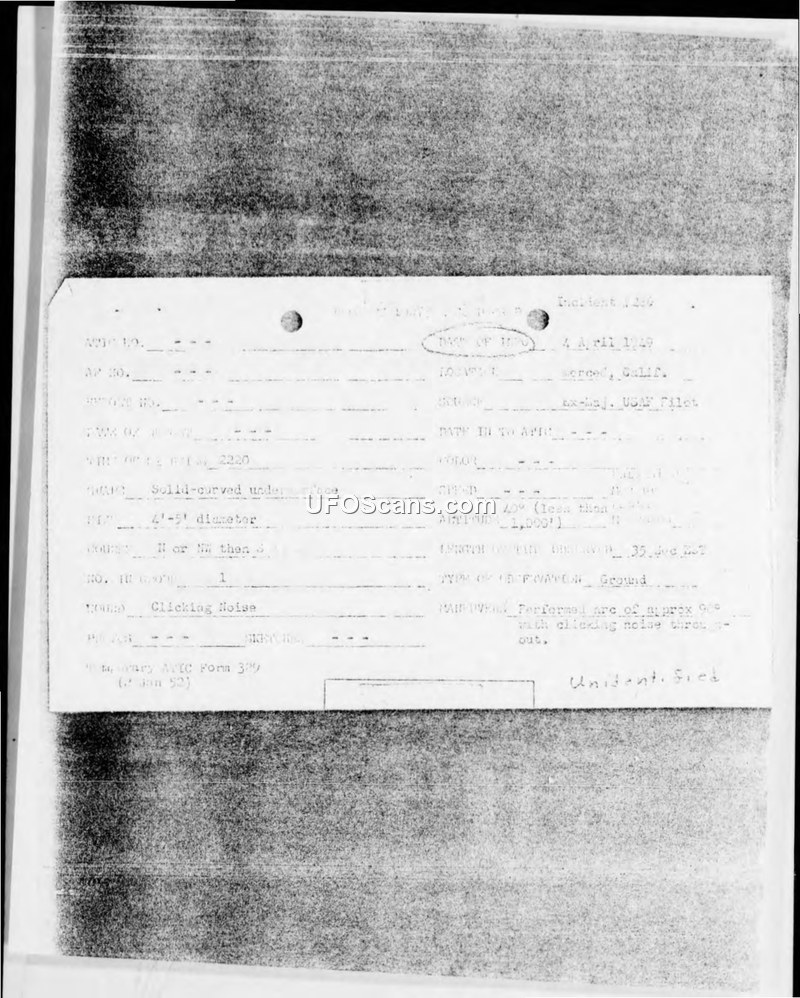 Incident
ATIC NO. - - - DATE OF INFO 4 April 1949
AF NO. - - - LOCATION Merced, Calif.
REPORT NO. - - - SOURCE Ex-Maj. USAF Pilot
- - - DATE IN TO ATIC - - -
2220 COLOR - - -
SHAPE Solid-curved under SPEED - - -
UFOScans.com
SIZE 4'-5' diameter ALTITUDE 40° (less than 1,000')
COURSE N or NW then LENGTH OF TIME OBSERVED 35 sec
NO. IN GROUP 1 TYPE OF OBSERVATION Ground
SOUND Clicking Noise MANEUVERS Performed arc of approx 90°
with clicking noise through-
out.
PHOTOS - - - SKETCHES - - -
Temporary ATIC Form 329
(2 Jan 52)
Unidentified